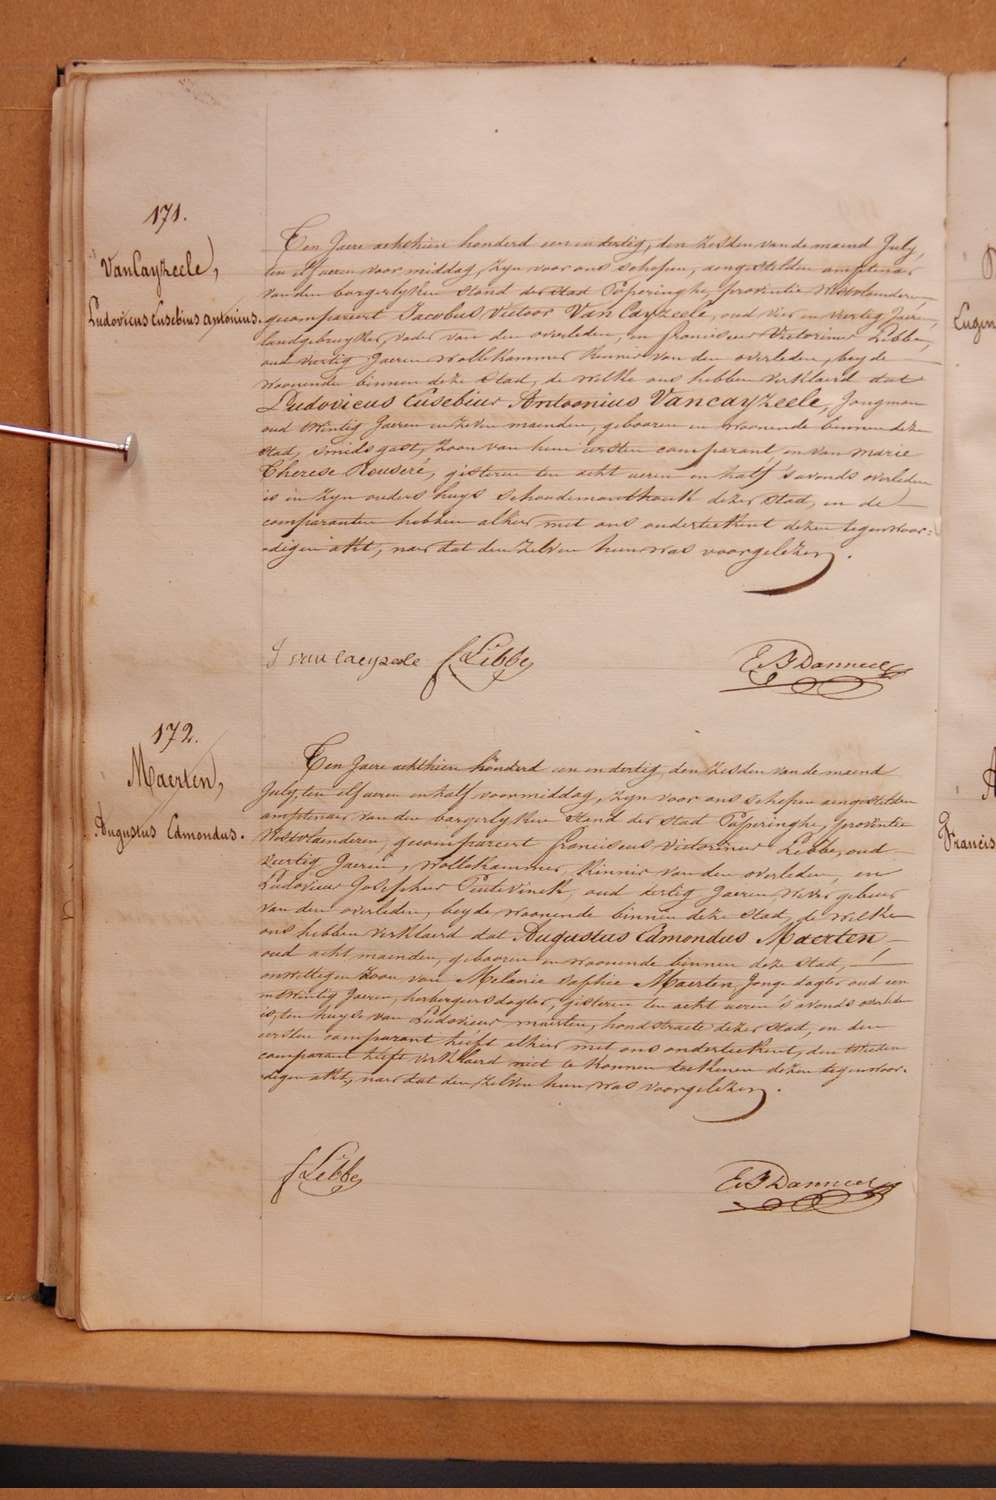 171.
VanCayzeele,
Ludovicus Eusebius Antonius.
Ten Jaere achthien honderd een en dertig, den zesden van de maend July,
ten elf ueren voor middag, zyn voor ons schepen, aengestelden amptenaer
van den borgerlyken stand der stad Poperinghe, provintie Westvlaenderen
gecompareert Jacobus Victoor Van Cayzeele, oud vier en veertig Jaeren,
landgebruyker, vader van den overleden, en franciscus Victorinus Libbe,
oud veertig Jaeren wollekammer kennis van den overleden, beyde
woonende binnen deze stad, de welke ons hebben verklaerd dat
Ludovicus Eusebius Antoonius Vancayzeele, Jongman
oud twintig Jaeren en zeven maenden, gebooren en woonende binnen deze
stad, smids gast, zoon van hun eersten comparant en van marie
Therese Reuseré, gisteren ten acht ueren en half 's avonds overleden
is in zyn ouders huys schoudemonthouk dezer stad, en de
comparanten hebben alhier met ons onderteekent dezen tegenwoor=
=digen akt, naer dat den zelven hun was voorgelezen.
J van caeyzeele f Libbe
E B Dannecl
172.
Maerten,
Augustus Edmondus.
Ten Jaere achthien honderd een en dertig, den zesden van de maend
July, ten elf ueren en half voormiddag, zyn voor ons schepen aengestelden
amptenaer van den borgerlyken stand der stad Poperinghe, provintie
Westvlaenderen, gecompareert franciscus Victorinus Libbe, oud
veertig Jaeren, wollekammer, kennis van den overleden, en
Ludovicus Josephus Pentevinck, oud dertig Jaeren wever gebuer
van den overleden, beyde woonende binnen deze stad, de welke
ons hebben verklaerd dat Augustus Edmondus Maerten
oud acht maenden, gebooren en woonende binnen deze stad,
onwettigen zoon van Melanie sophie Maerten, Jonge dogter oud een
en twintig Jaeren, herbergiersdogter, gisteren ten acht ueren 's avonds overleden
is, ten huyse van Ludovicus maerten, hondstraete dezer stad, en den
eersten comparant heeft alhier met ons onderteekent, den tweeden
comparant heeft verklaerd niet te konnen teekenen dezen tegenwoor=
=digen akt, naer dat den zelven hun was voorgelezen.
f Libbe
E B Dannecl
Eugen
Francis